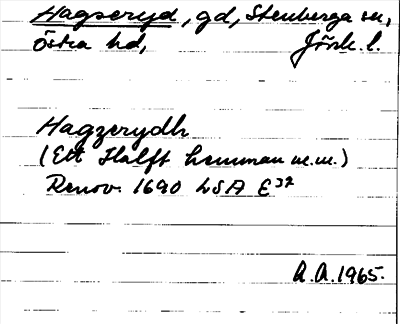 Hagseryd, gd, Stenberga sn,
Östra hd, Jönk. l.
Hagzerydh
(Ett Halft hemman m.m.)
Renov. 1690 LSA E37
A.A. 1965.